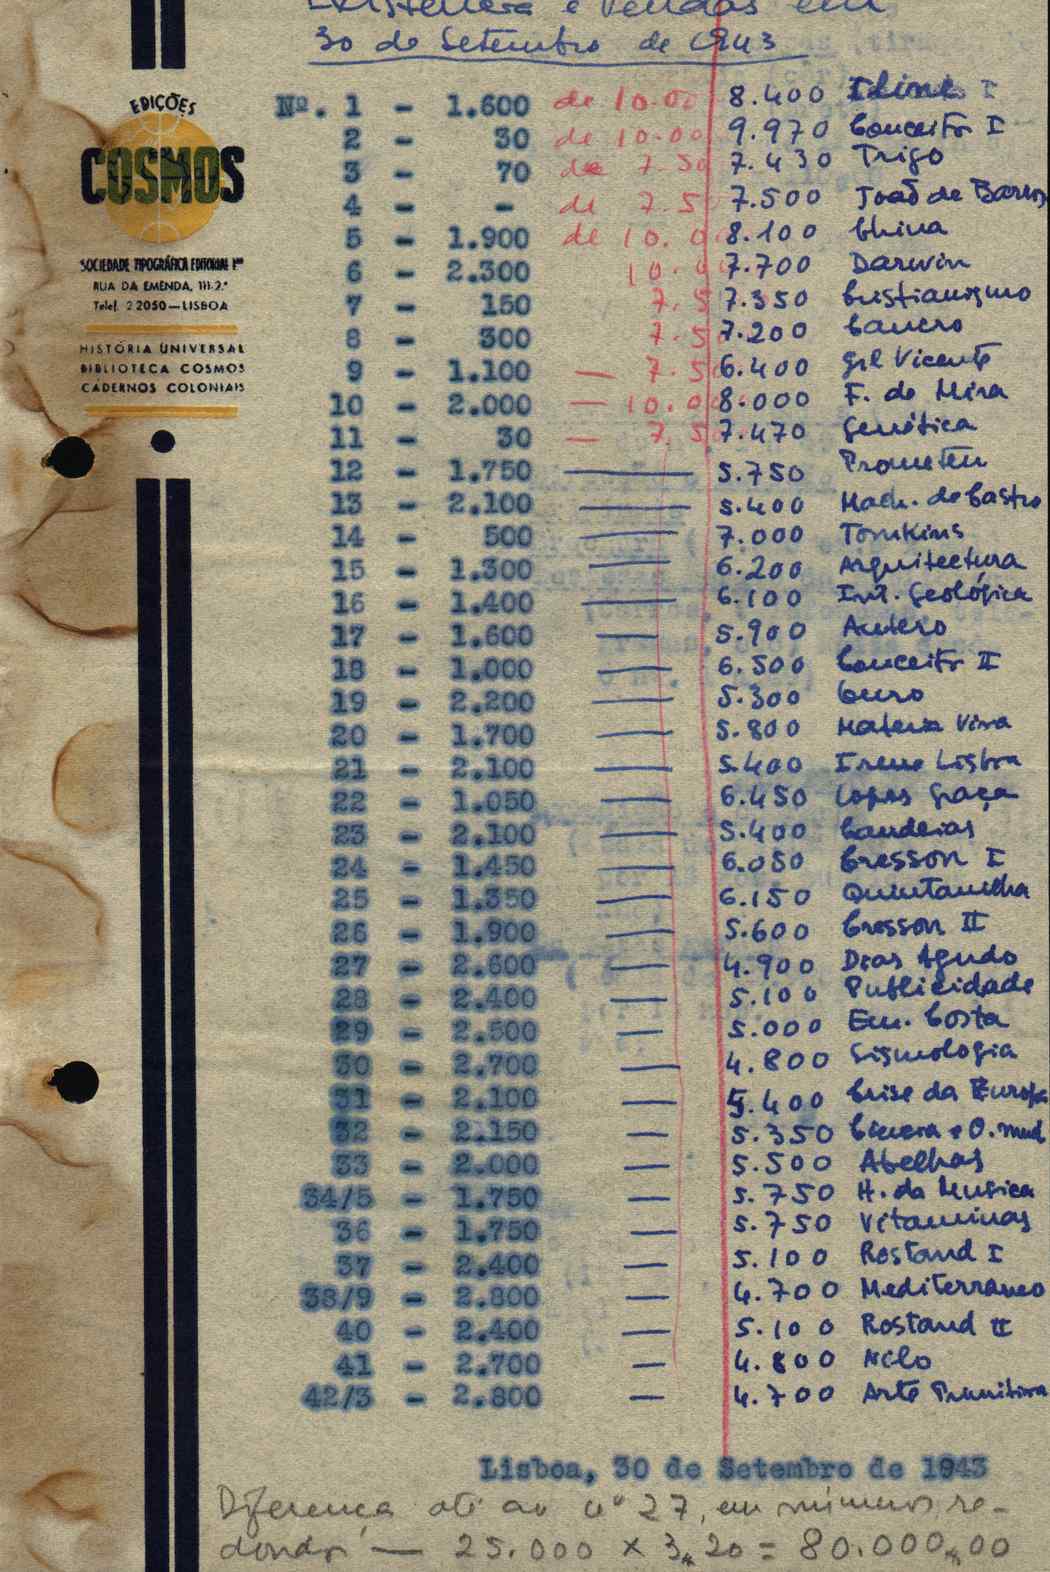 Existencia e Vendas em
30 de Setembro de 1943
EDIÇÕES
COSMOS
SOCIEDADE TIPOGRÁFICA EDITORIAL Lda
RUA DA EMENDA, 111-2.º
Telef. 2 2050—LISBOA
HISTÓRIA UNIVERSAL
BIBLIOTECA COSMOS
CADERNOS COLONIAIS
Nº. 1 - 1.600 de 10.00 8.400 I
2 - 30 de 10.00 9.970 Conceito I
3 - 70 de 7.50 7.430 Trigo
4 - - de 7.5 7.500 João de Barros
5 - 1.900 de 10.0 8.100 China
6 - 2.300 10.0 7.700 Darwin
7 - 150 7.5 7.350 Cristianismo
8 - 300 7.5 7.200 Cancro
9 - 1.100 — 7.5 6.400 Gil Vicente
10 - 2.000 — 10.00 8.000 F. de Mira
11 - 30 — 7.50 7.470 Genética
12 - 1.750 — 5.750 Prometeu
13 - 2.100 — 5.400 Mach. de Castro
14 - 500 — 7.000 Tomkins
15 - 1.300 — 6.200 Arquitectura
16 - 1.400 — 6.100 Int. Geológica
17 - 1.600 — 5.900 Antero
18 - 1.000 — 6.500 Conceito II
19 - 2.200 — 5.300 Ouro
20 - 1.700 — 5.800 Materia Viva
21 - 2.100 — 5.400 Irene Lisboa
22 - 1.050 — 6.450 Lopes Graça
23 - 2.100 — 5.400 Candeias
24 - 1.450 — 6.050 Cresson I
25 - 1.350 — 6.150 Quintanilha
26 - 1.900 — 5.600 Cresson II
27 - 2.600 — 4.900 Dias Agudo
28 - 2.400 — 5.100 Publicidade
29 - 2.500 — 5.000 Em. Costa
30 - 2.700 — 4.800 Sismologia
31 - 2.100 — 5.400 Crise da Europa
32 - 2.150 — 5.350 Ciencia e O. mud
33 - 2.000 — 5.500 Abelhas
34/5 - 1.750 — 5.750 H. da Musica
36 - 1.750 — 5.750 Vitaminas
37 - 2.400 — 5.100 Rostand I
38/9 - 2.800 — 4.700 Mediterraneo
40 - 2.400 — 5.100 Rostand II
41 - 2.700 — 4.800 Nilo
42/3 - 2.800 — 4.700 Arte Primitiva
Lisboa, 30 de Setembro de 1943
Diferença até ao nº 27, em números re-
dondos — 25.000 x 3,20 = 80.000,00